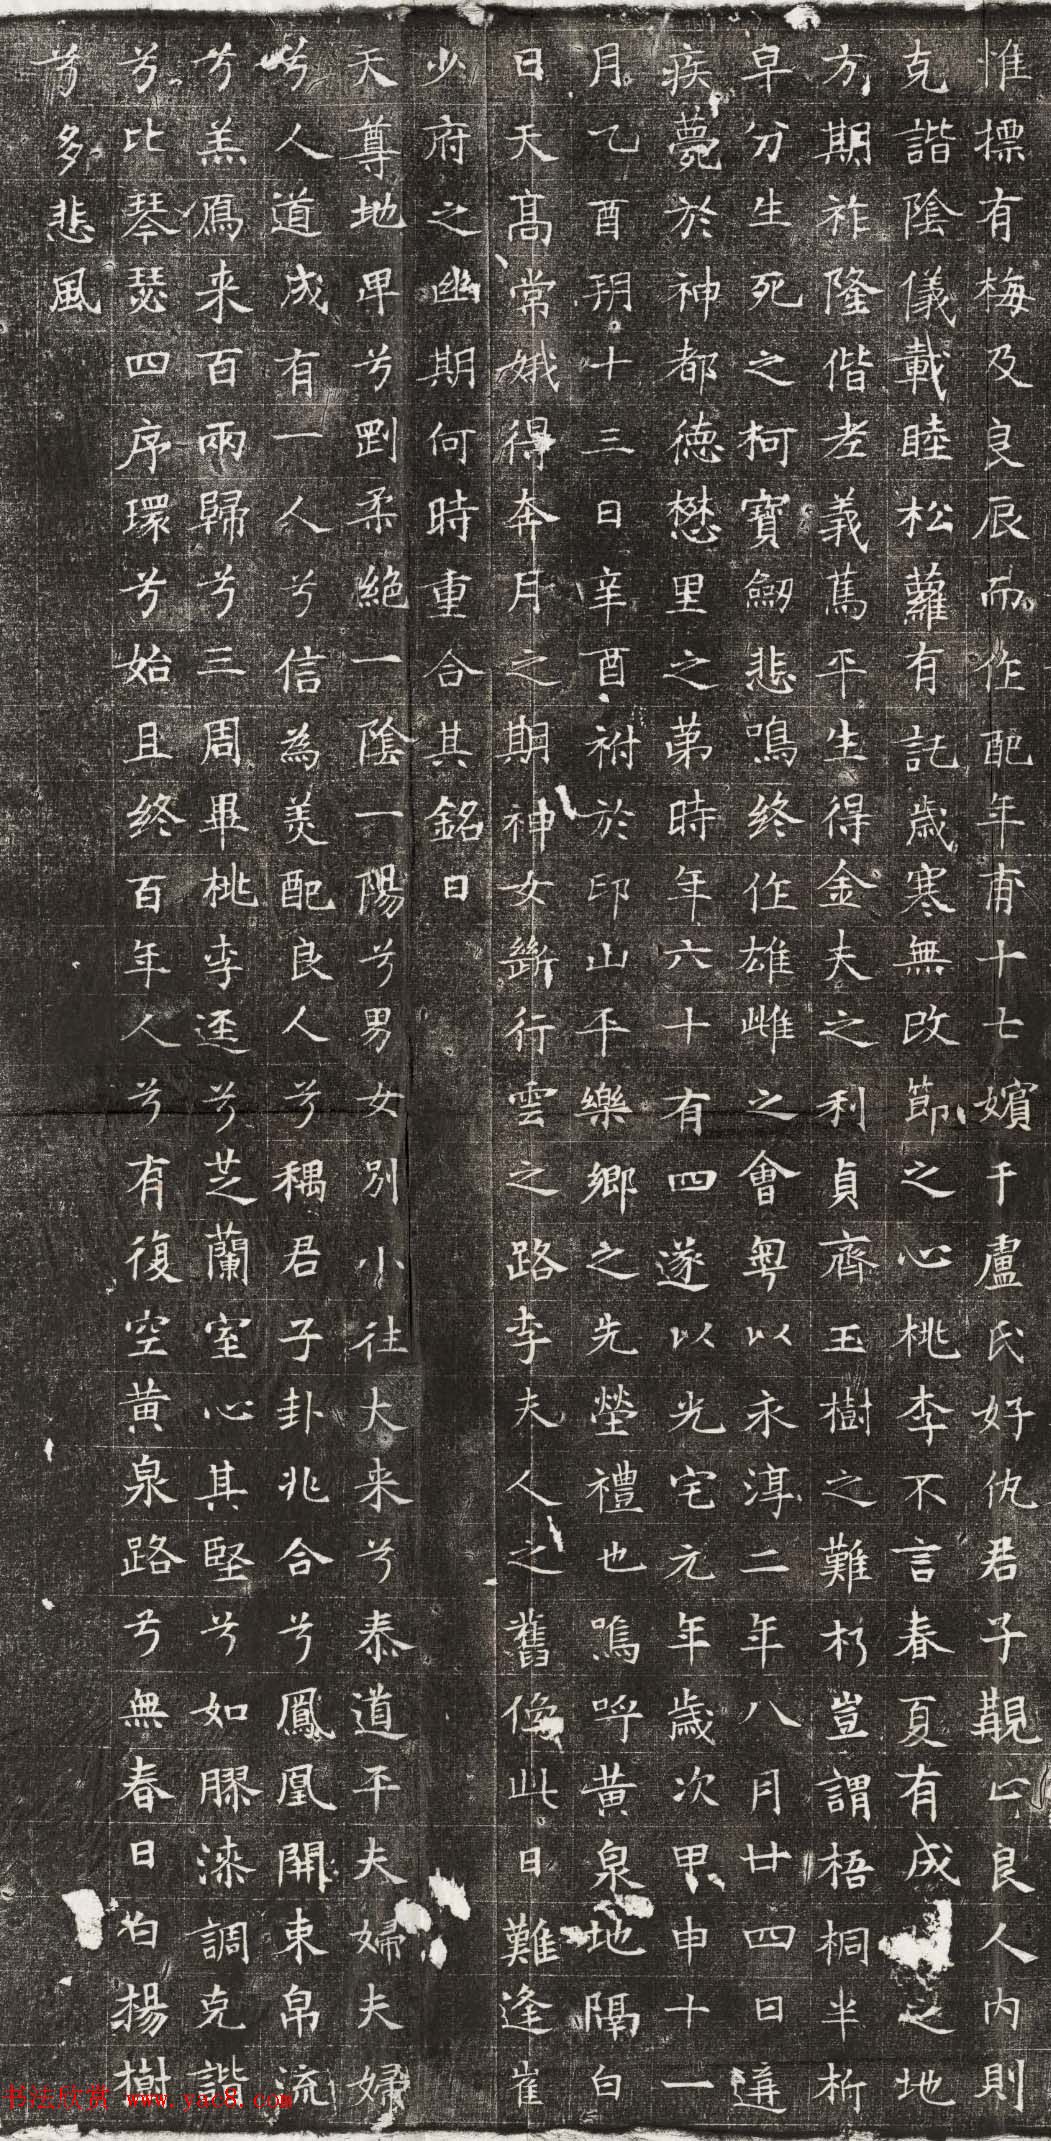 惟摽有梅及良辰而作配年甫十七嬪于盧氏好仇君子覯止良人內則
克諧陰儀載睦松蘿有託歲寒無改節之心桃李不言春夏有成之地
方期祚隆偕老義篤平生得金夫之利貞齊玉樹之難朽豈謂梧桐半枿
早分生死之柯寶劒悲鳴終作雄雌之會粵以永淳二年八月廿四日遘
疾薨於神都德懋里之第時年六十有四遂以光宅元年歲次甲申十一
月乙酉玥十三日辛酉祔於印山平樂鄉之先塋禮也嗚呼黃泉地隔白
日天高常娥得奔月之期神女斷行雲之路李夫人之舊像此日難逢崔
少府之幽期何時重合其銘曰
天尊地卑兮剛柔絶一陰一陽兮男女別小往大来兮泰道平夫婦夫婦
兮人道成有一人兮信為美配良人兮稱君子卦兆合兮鳳凰開束帛流
兮羔鴈来百兩歸兮三周畢桃李逕兮芝蘭室心其堅兮如膠漆調克諧
兮比琴瑟四序環兮始且終百年人兮有復空黃泉路兮無春日白楊樹
兮多悲風
书法欣赏 www.yac8.com